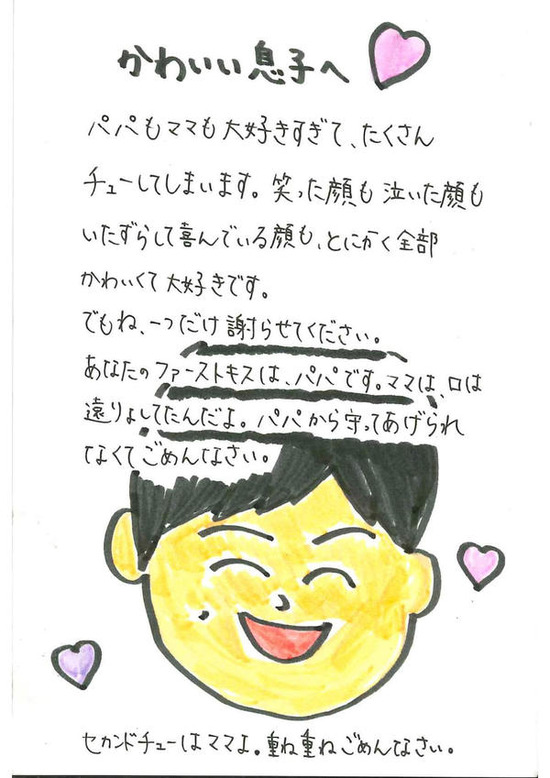 かわいい息子へ
パパもママも大好きすぎて、たくさん
チューしてしまいます。笑った顔も泣いた顔も
いたずらして喜んでいる顔も、とにかく全部
かわいくて大好きです。
でもね、一つだけ謝らせてください。
あなたのファーストキスは、パパです。ママは、口は
遠りょしてたんだよ。パパから守ってあげられ
なくてごめんなさい。
セカンドチューはママよ。重ね重ねごめんなさい。